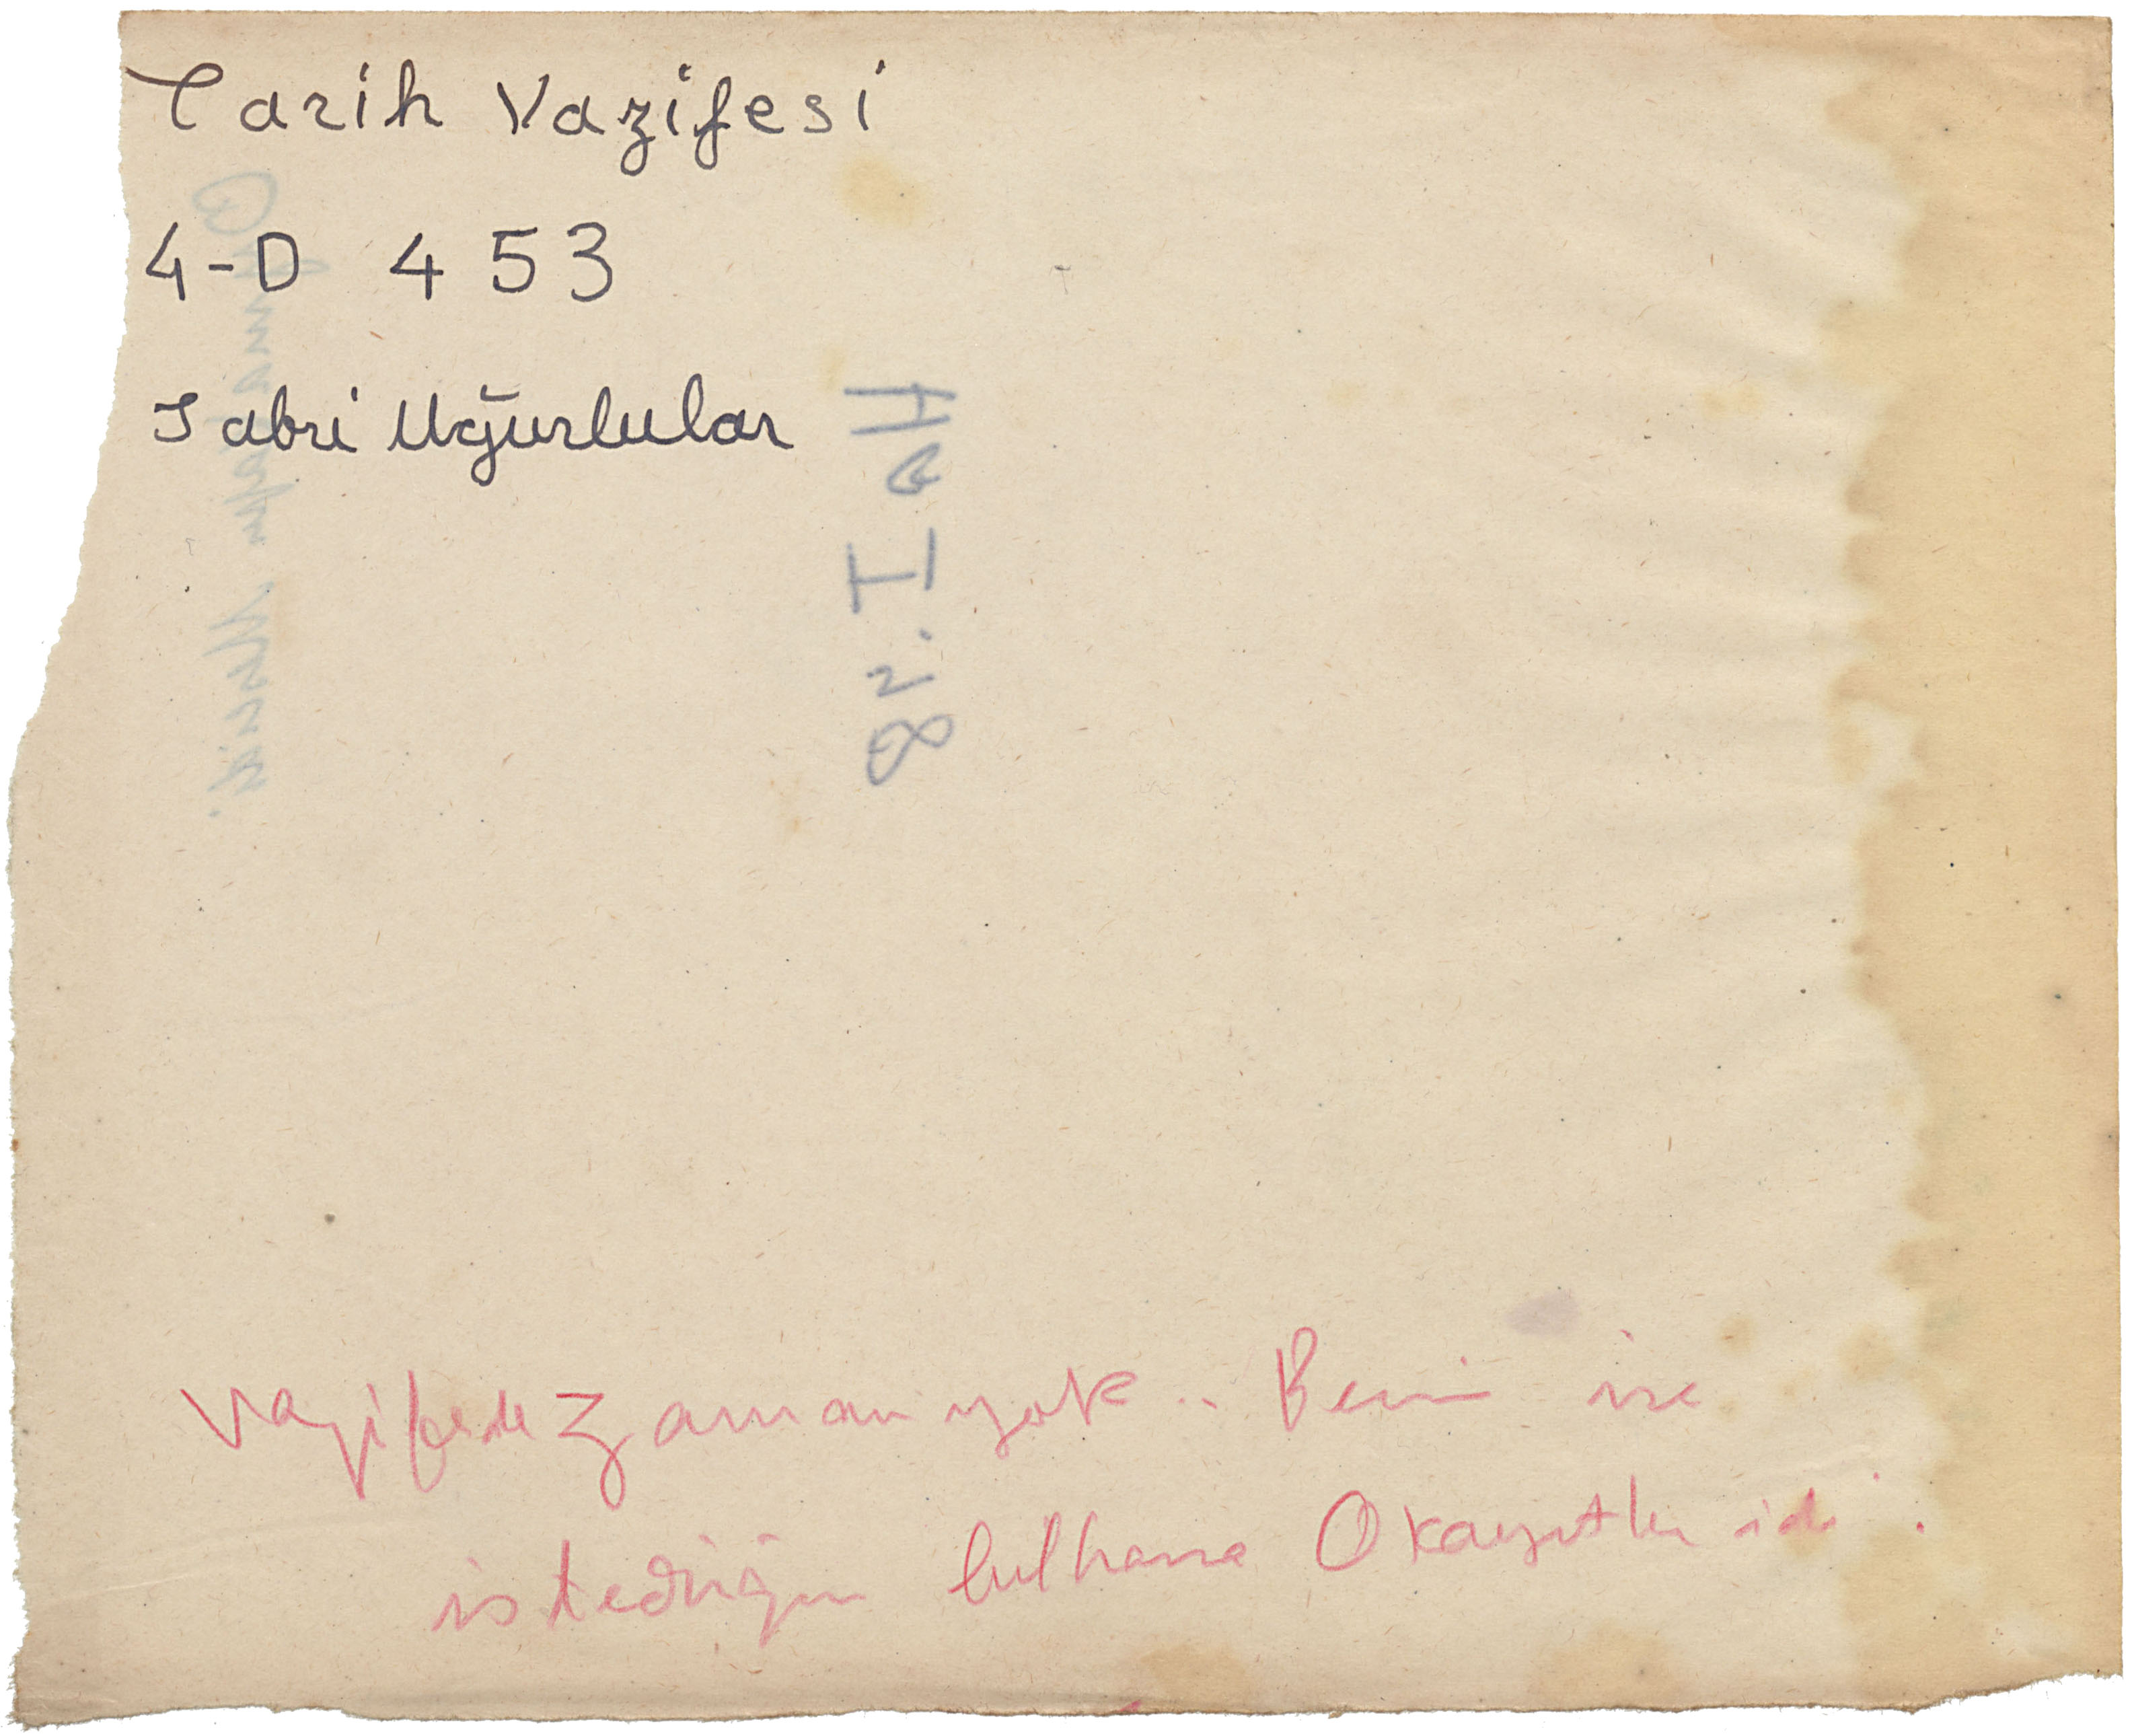 Tarih Vazifesi
4-D 453
Sabri Uğurlular
Ha I.
Vazifede Zaman yok.. Beni ise
istediğim bilhassa O kayıtlar idi.